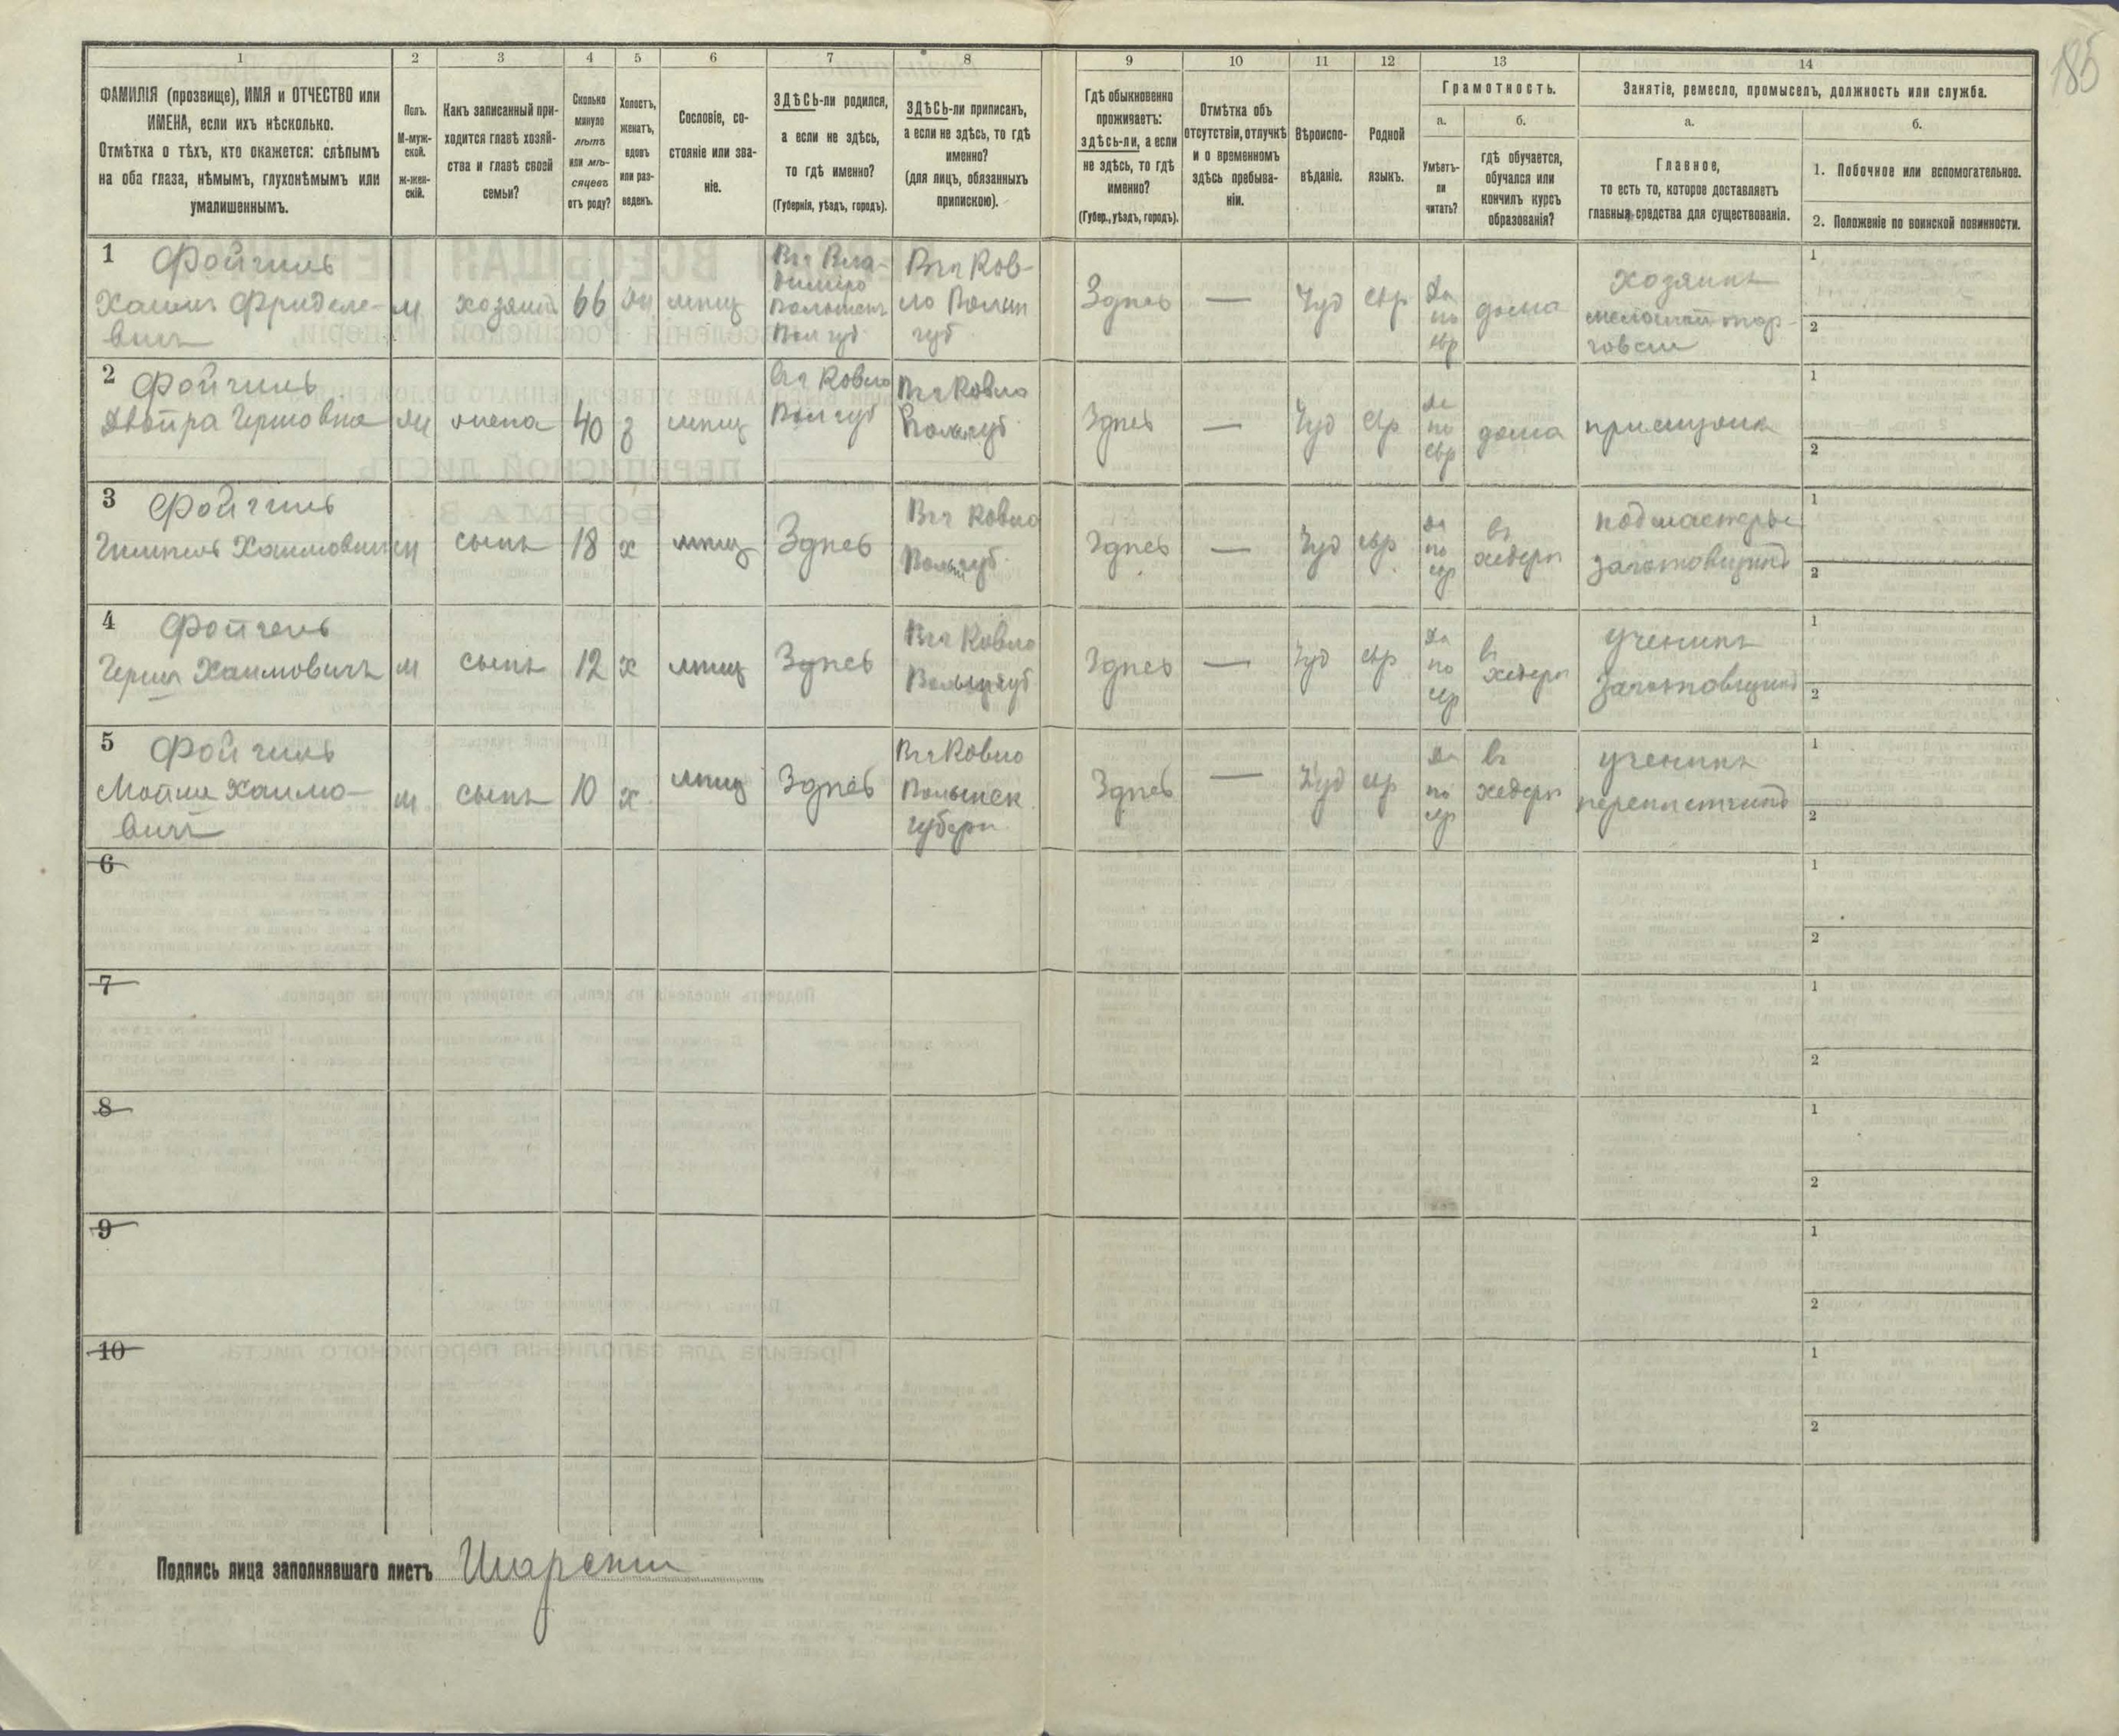 185
1 2 3 4 5 6 7 8 9 10 11 12 13 14
ФАМИЛІЯ (прозвище), ИМЯ и ОТЧЕСТВО или
ИМЕНА, если ихъ нѣсколько.
Отмѣтка о тѣхъ, кто окажется: слѣпымъ
на оба глаза, нѣмымъ, глухонѣмымъ или
умалишеннымъ.
Полъ.
М-муж-
ской.
ж-жен-
скій.
Какъ записанный при-
ходится главѣ хозяй-
ства и главѣ своей
семьи?
Сколько
минуло
лѣтъ
или мѣ-
сяцевъ
отъ роду?
Холостъ,
женатъ,
вдовъ
или раз-
веденъ.
Сословіе, со-
стояніе или зва-
ніе.
ЗДѢСЬ-ли родился,
а если не здѣсь,
то гдѣ именно?
(Губернія, уѣздъ, городъ).
ЗДѢСЬ-ли приписанъ,
а если не здѣсь, то гдѣ
именно?
(для лицъ, обязанныхъ
припискою).
Гдѣ обыкновенно
проживаетъ:
здѣсь-ли, а если
не здѣсь, то гдѣ
именно?
(Губер., уѣздъ, городъ).
Отмѣтка объ
отсутствіи, отлучкѣ
и о временномъ
здѣсь пребыва-
ніи.
Вѣроиспо-
вѣданіе.
Родной
языкъ.
Грамотность.
а.
Умѣетъ-
ли
читать?
б.
гдѣ обучается,
обучался или
кончилъ курсъ
образованія?
Занятіе, ремесло, промыселъ, должность или служба.
а.
Главное,
то есть то, которое доставляетъ
главныя средства для существованія.
б.
1. Побочное или вспомогательное.
2. Положеніе по воинской повинности.
1 Фойгиль
Хаимъ Фриделе-
вичъ
м
хозяинъ
66
жн
мѣщ
Вла-
диміро
Волынск
Вол губ
Ков-
ло Волын
губ
Здѣсь
—
Іуд
евр
Да
по
евр
дома
хозяинъ
мелочной тор-
говли
1
2
2 Фойгиль
Двойра Гершовна
жена
40
з
мѣщ
Ковло
Вол губ
Ковло
Волын губ
Здѣсь
—
Іуд
евр
да
по
евр
дома
при мужѣ
1
2
3 Фойгиль
Хаимович
м
сынъ
18
х
мѣщ
Здѣсь
Ковло
Волын губ
Здѣсь
—
Іуд
евр
да
по
евр
въ
хедерѣ
подмастерье
заготовщика
1
2
4 Фойгель
Герш Хаимовичъ
м
сынъ
12
х
мѣщ
Здѣсь
Ковло
Волын губ
Здѣсь
—
Іуд
евр
да
по
евр
въ
хедерѣ
ученикъ
заготовщика
1
2
5 Фойгиль
Мойше Хаимо-
вичъ
м
сынъ
10
х
мѣщ
Здѣсь
Ковло
Волынск
губерн
Здѣсь
—
Іуд
евр
да
по
евр
въ
хедерѣ
ученикъ
переплетчика
1
2
6
1
2
7
1
2
8
1
2
9
1
2
10
1
2
Подпись лица заполнявшаго листъ